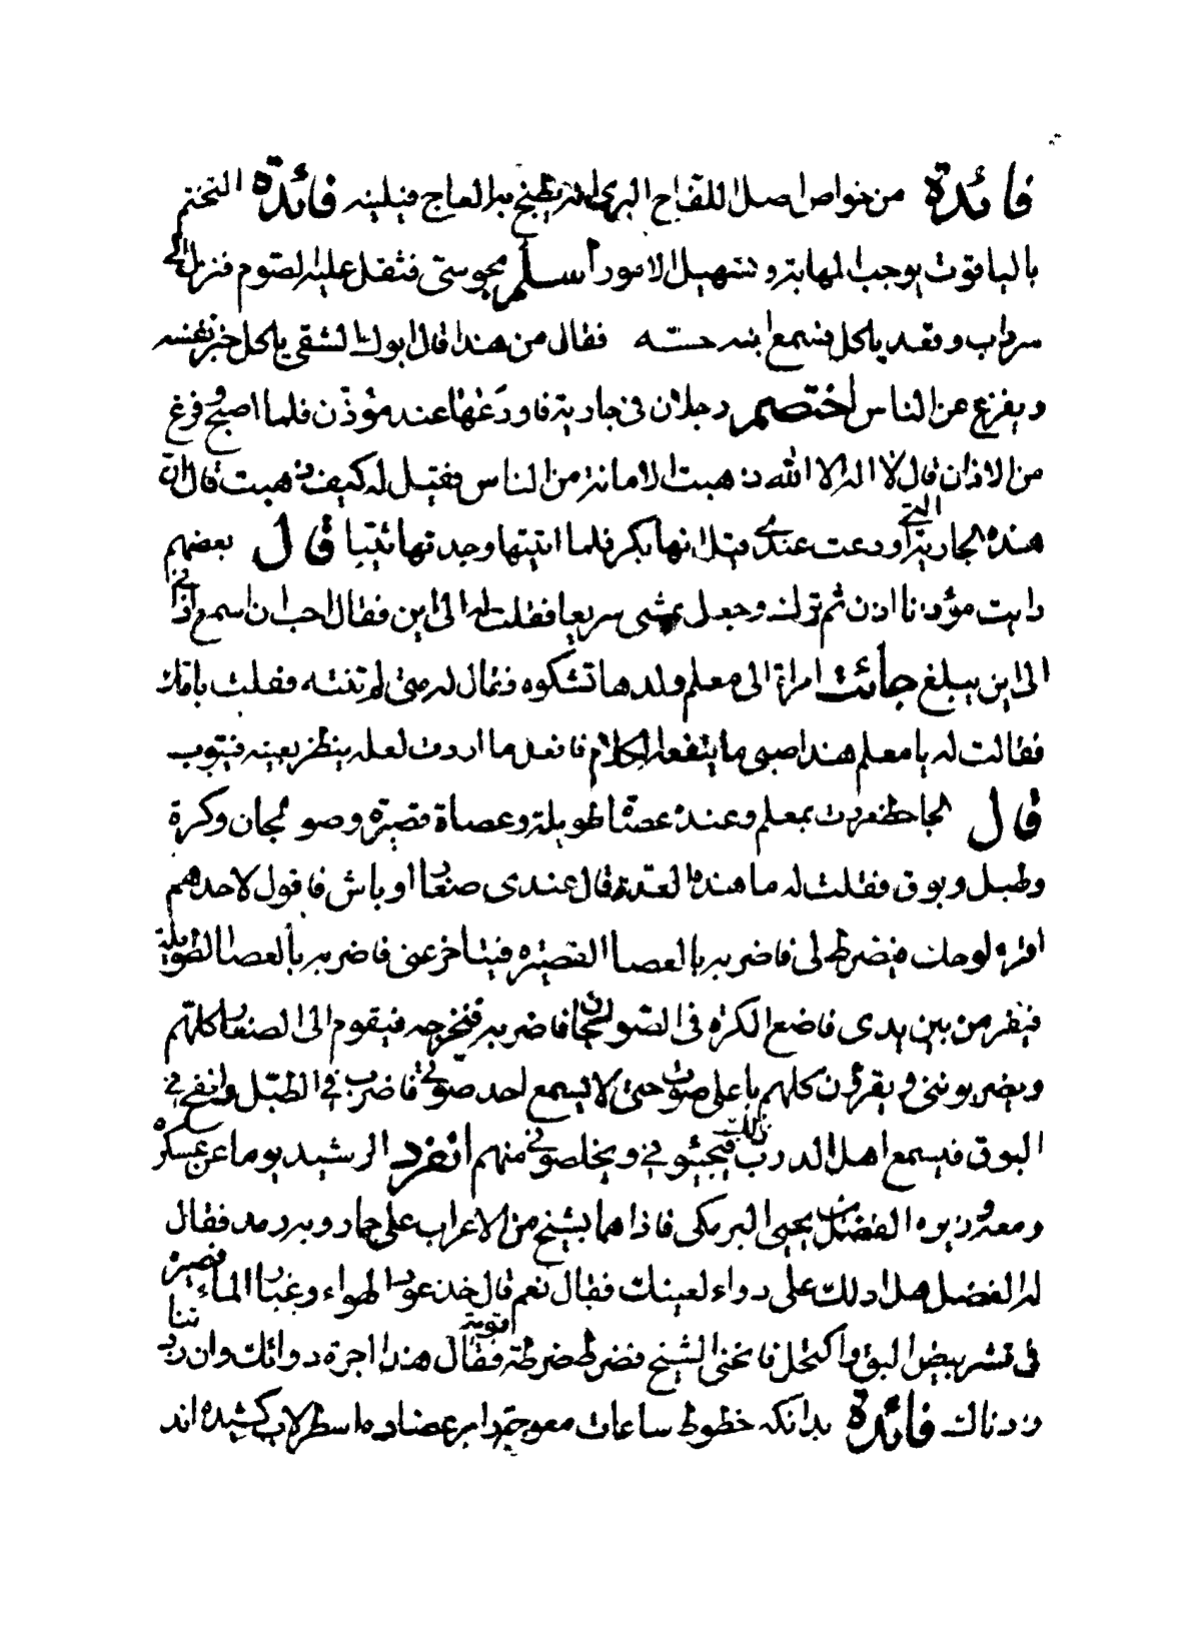 فائدة من خواص اصل اللفاح البرى انه يطبخ به العاج فيلينه فائدة التختم
بالياقوت يوجب المهابة وتسهيل الامور أسلم مجوستى فثقل عليه الصوم فنزل الى
سرداب وقعد ياكل فسمع ابنه حسّه فقال من هذا قال ابوك الشقى ياكل خبز نفسه
ويفزع عن الناس اختصم رجلان فى جارية فاودعها عند مؤذّن فلما اصبح وفرغ
من الاذان قال لا اله الا الله ذهبت الامانة من الناس فقيل له كيف ذهبت قال انّ
هذه الجارية التى اودعت عندى قيل انها بكر فلما اتيتها وجدتها ثيّبا قال بعضهم
رايت مؤذنا اذن ثم ترك وجعل يمشى سريعا فقلت له الى اين فقال احب ان اسمع اذانى
الى اين يبلغ جائت امراة الى معلم ولدها تشكوه فقال له متى لم تنته فعلت بامّك
فقالت له يا معلم هذا صبى ما ينفعه الكلام فافعل ما اردت لعله ينظر بعينه فيتوب
قال الجاحظ مررت بمعلم وعنده عصّا طويلة وعصاة قصيرة وصولجان وكرة
وطبل وبوق فقلت له ما هذه العدة قال عندى صغار اوباش فاقول لاحدهم
اقرء لوحك فيضرط لى فاضربه بالعصا القصيره فيتاخر عنى فاضربه بالعصا الطويلة
فيفر من بين يدى فاضع الكرة فى الصّولجان فاضربه فيخرجه فيقوم الى الصغار كلهم
ويضربوننى ويقرؤن كلهم باعلى صوت حتى لا يسمع احد صوتى فاضرب فى الطبل وانفخ فى
البوق فيسمع اهل الدرب ذلك فيجيئونى ويخلصونى منهم انفرد الرشيد يوما عن عسكره
ومعه وزيره الفضل بن يحيى البرمكى فاذا هما بشيخ من الاعراب على حمار وبه رمد فقال
له الفضل هل ادلك على دواء لعينك فقال نعم قال خذ عود الهواء وغبار الماء فصيره
فى قشر بيض البق واكتحل فانحنى الشيخ فضرط ضرطة قوية فقال هذا اجرة دوائك وان زدتنا
زدناك فائدة بدانكه خطوط ساعات معوجه را بر عضاده اسطرلاب كشيده اند